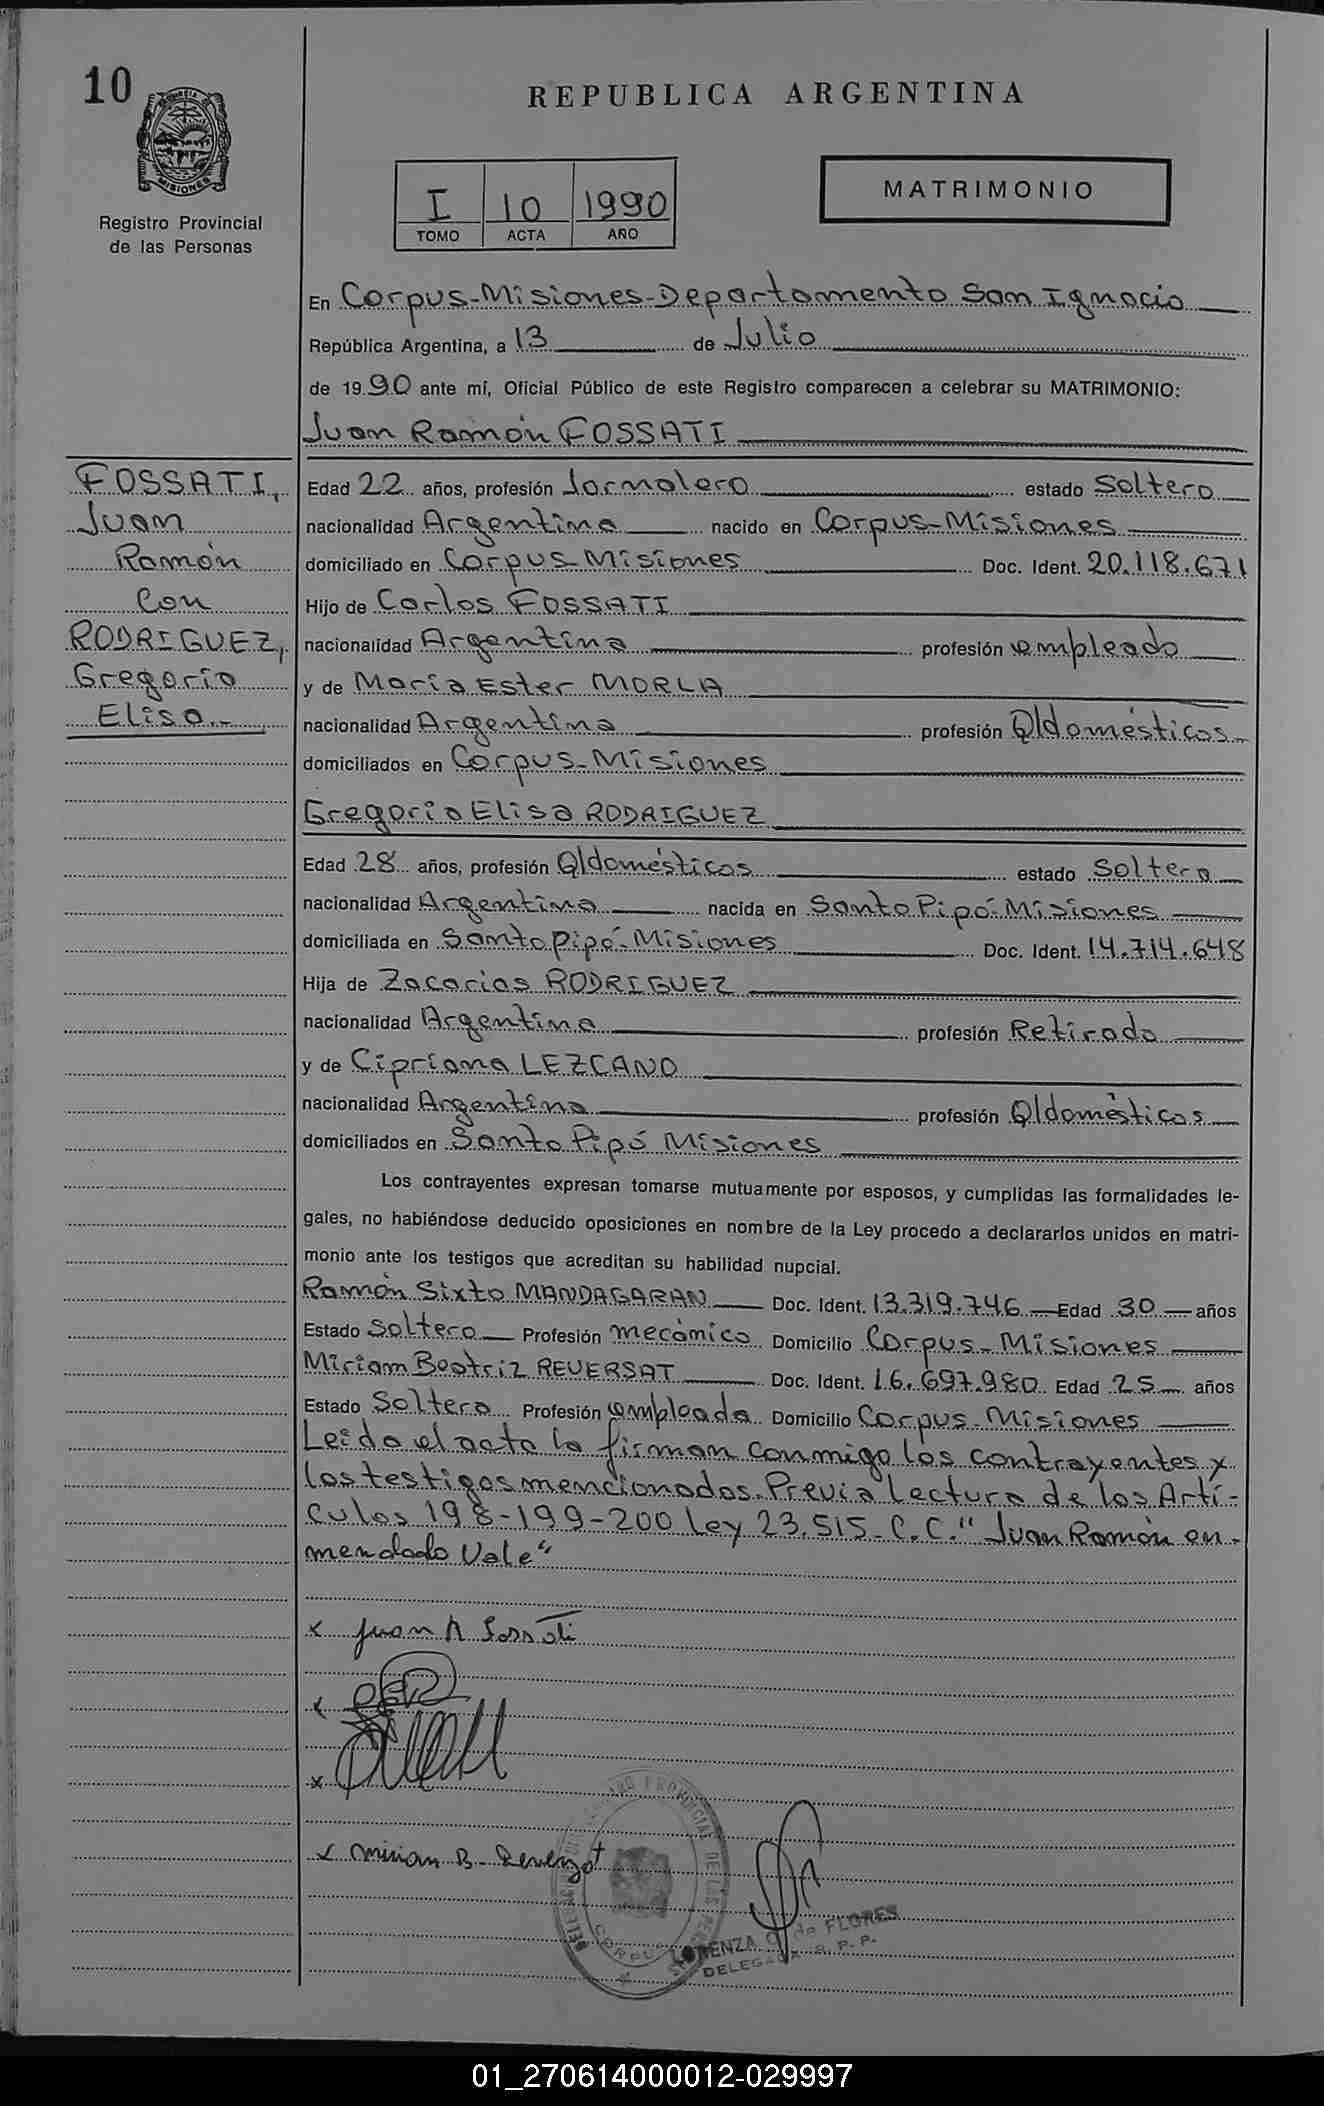 10
REPUBLICA ARGENTINA
MISIONES
Registro Provincial
de las Personas
I 10 1990
TOMO ACTA AÑO
MATRIMONIO
En Corpus-Misiones-Departamento San Ignacio
República Argentina, a 13 de Julio
de 1990 ante mí, Oficial Público de este Registro comparecen a celebrar su MATRIMONIO:
Juan Ramón FOSSATI
FOSSATI,
Juan
Ramón
Con
RODRIGUEZ,
Gregoria
Elisa.-
Edad 22 años, profesión Jornalero estado Soltero
nacionalidad Argentina nacido en Corpus-Misiones
domiciliado en Corpus-Misiones Doc. Ident. 20.118.671
Hijo de Carlos FOSSATI
nacionalidad Argentina profesión empleado
y de María Ester MORLA
nacionalidad Argentina profesión Q/domésticos
domiciliados en Corpus-Misiones
Gregoria Elisa RODRIGUEZ
Edad 28 años, profesión Q/domésticos estado Soltera
nacionalidad Argentina nacida en Santo Pipó-Misiones
domiciliada en Santo pipó-Misiones Doc. Ident. 14.714.648
Hija de Zacarias RODRIGUEZ
nacionalidad Argentina profesión Retirado
y de Cipriana LEZCANO
nacionalidad Argentina profesión Q/domésticos
domiciliados en Santo Pipó Misiones
Los contrayentes expresan tomarse mutuamente por esposos, y cumplidas las formalidades le-
gales, no habiéndose deducido oposiciones en nombre de la Ley procedo a declararlos unidos en matri-
monio ante los testigos que acreditan su habilidad nupcial.
Ramón Sixto MANDAGARAN Doc. Ident. 13.319.746 Edad 30 años
Estado Soltero Profesión mecánico Domicilio Corpus-Misiones
Miriam Beatriz REVERSAT Doc. Ident. 16.697.980 Edad 25 años
Estado Soltera Profesión empleada Domicilio Corpus-Misiones
Leida el acta la firman conmigo los contrayentes y
los testigos mencionados. Previa Lectura de los Artí-
culos 198-199-200 Ley 23.515-C.C." Juan Ramón en-
mendado Vale"
x Juan R Fossati
x
x
x Mirian B. Reversat
REGISTRO PROVINCIAL DE LAS
CORPUS
LORENZA de FLORES
DELEGADA R. P. P.
01_270614000012-029997